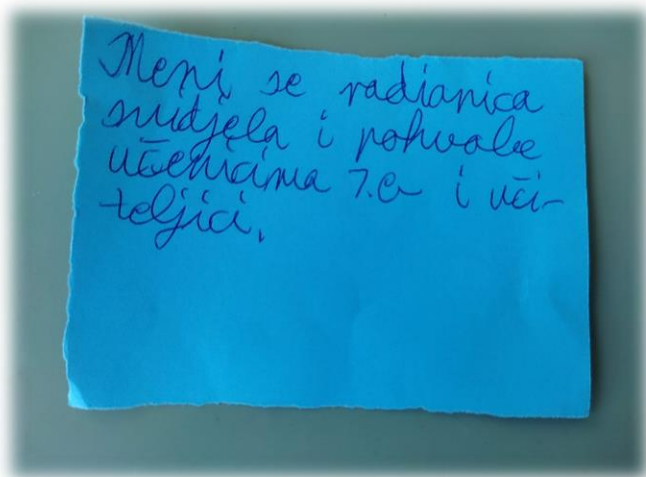 Meni se radianica
svidjela i pohvale
učenicima 7.a i uči-
teljici.